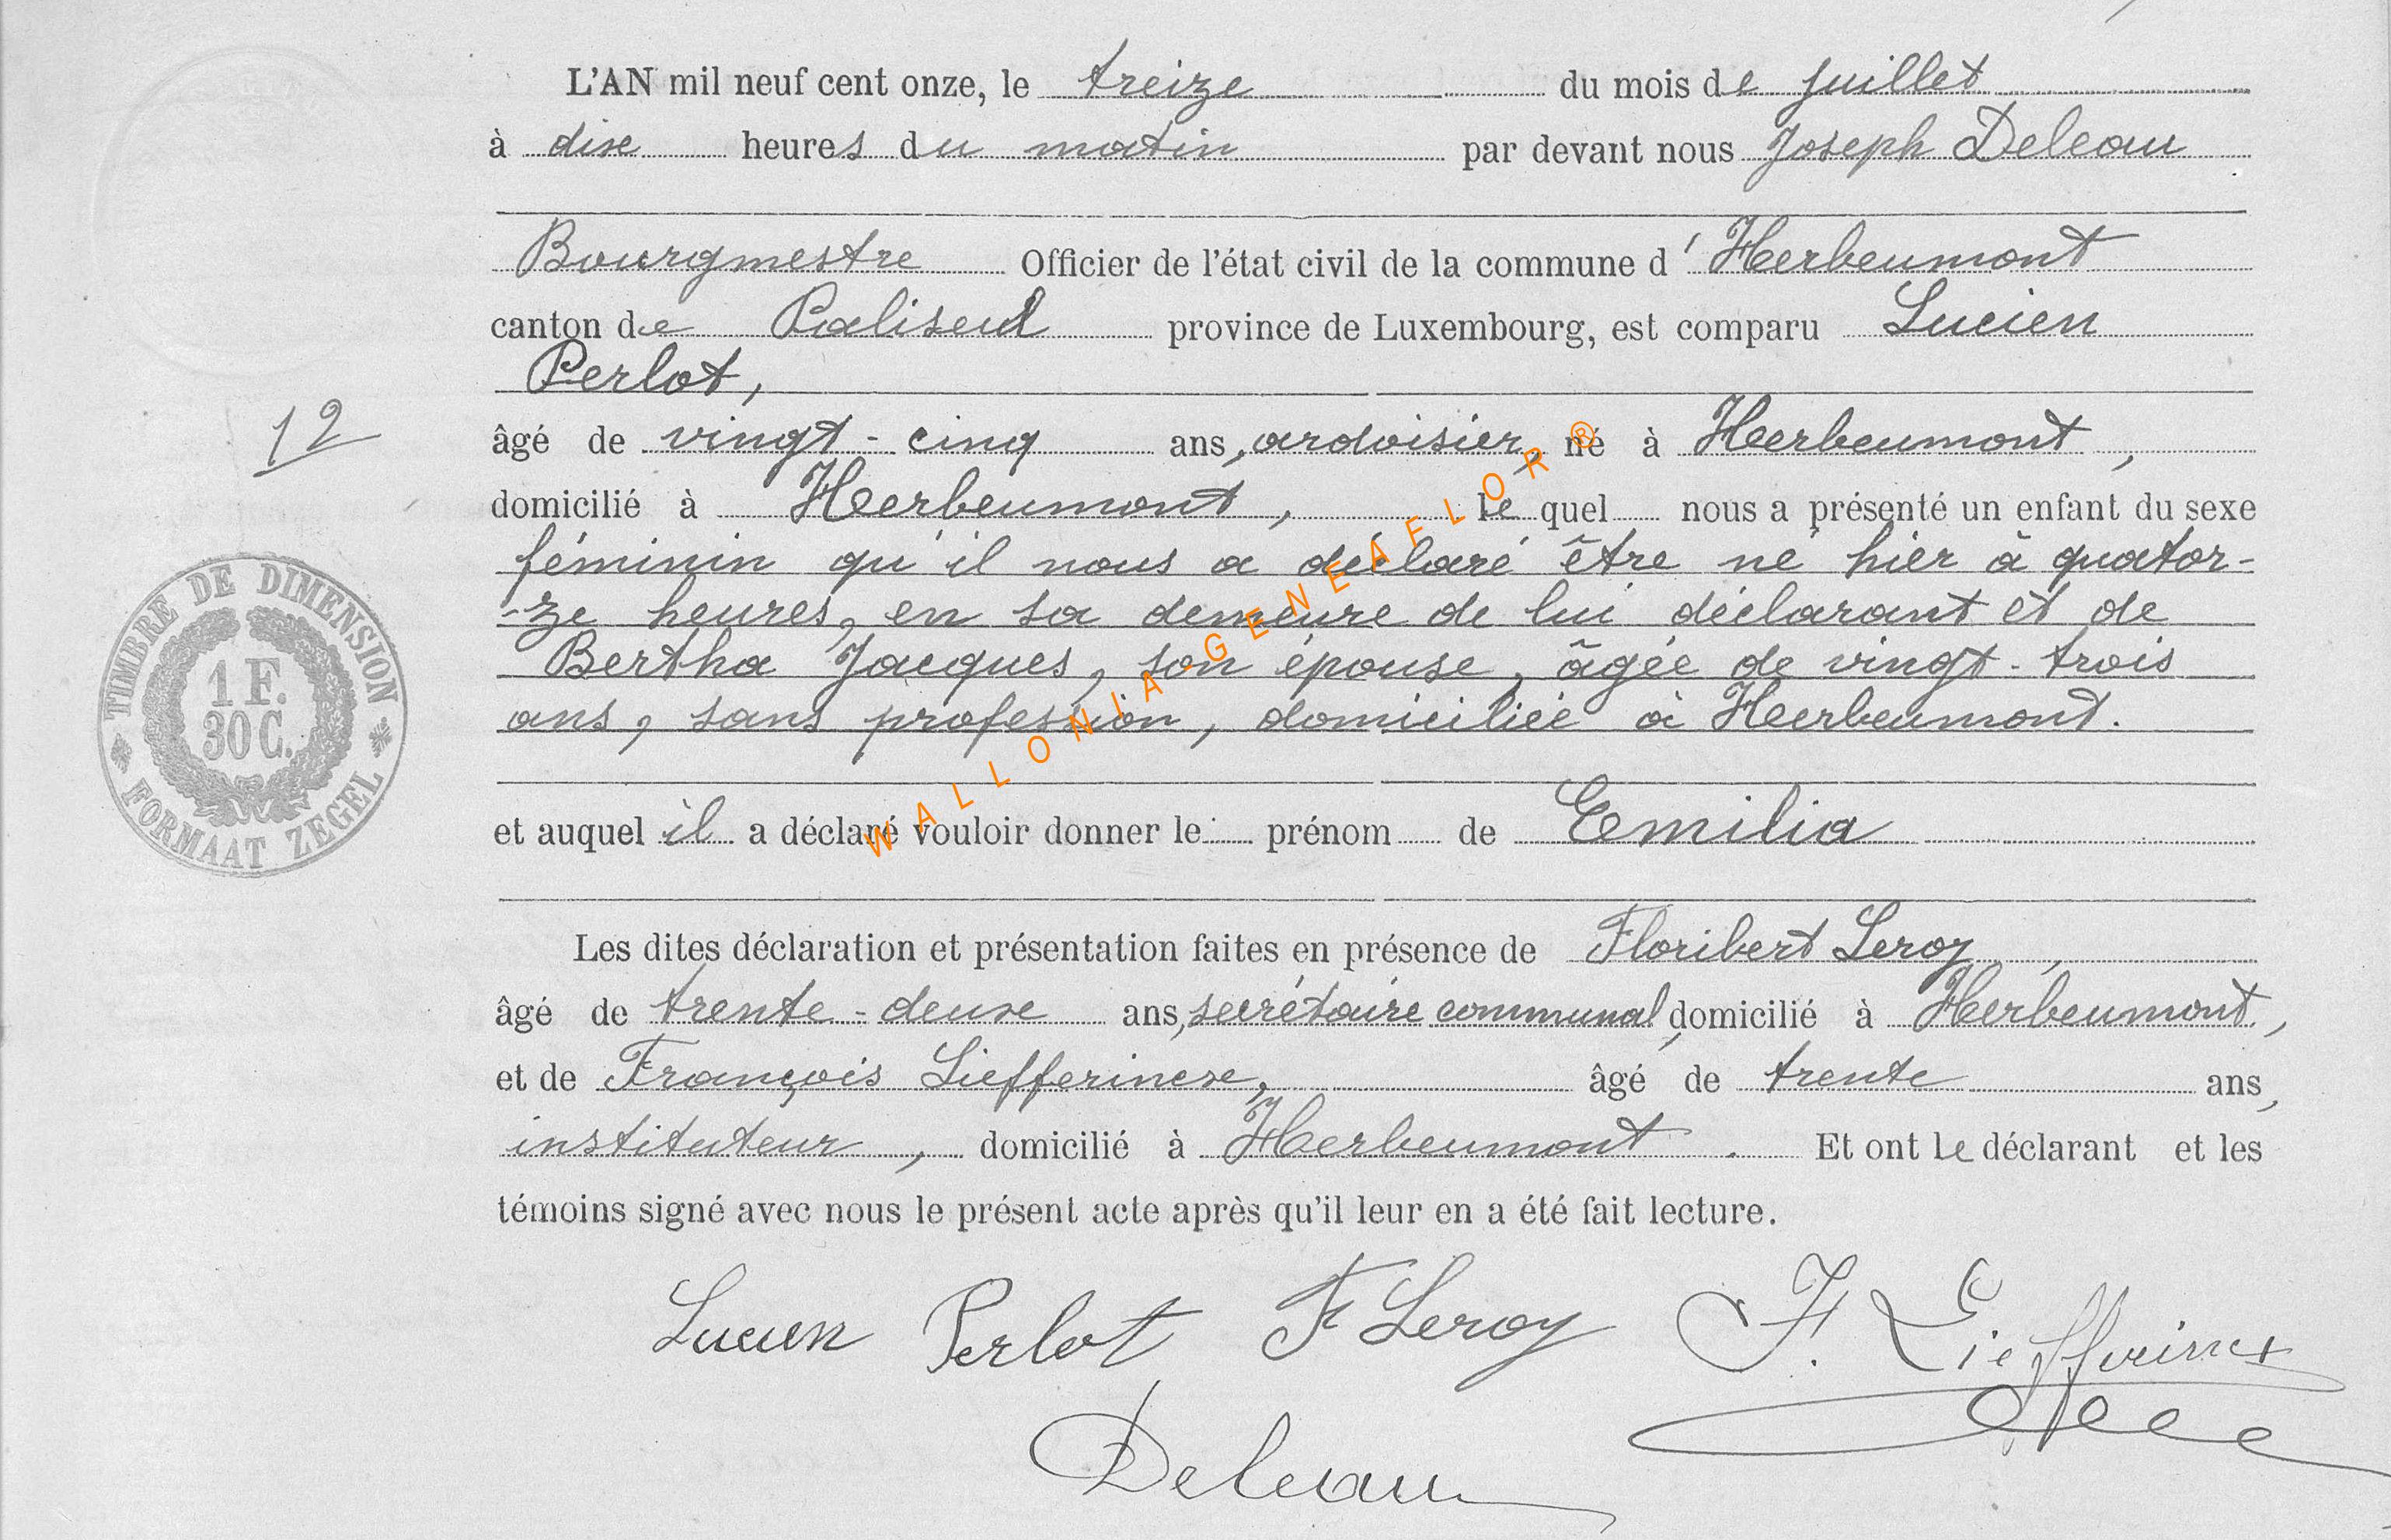 L'AN mil neuf cent onze, le treize du mois de juillet
à dix heures du matin par devant nous Joseph Deleau
Bourgmestre Officier de l'état civil de la commune d'Herbeumont
canton de Paliseul province de Luxembourg, est comparu Lucien
Perlot,
12
âgé de vingt-cinq ans, ardoisier, né à Herbeumont,
domicilié à Herbeumont, lequel nous a présenté un enfant du sexe
féminin qu'il nous a déclaré être né hier à quator-
-ze heures, en sa demeure de lui déclarant et de
Bertha Jacques, son épouse, âgée de vingt-trois
ans, sans profession, domiciliée à Herbeumont.
TIMBRE DE DIMENSION
1 F.
30 C.
FORMAAT ZEGEL
et auquel il a déclaré vouloir donner le prénom de Emilia
Les dites déclaration et présentation faites en présence de Floribert Leroy,
âgé de trente-deux ans, secrétaire communal, domicilié à Herbeumont,
et de François Liefferincx, âgé de trente ans,
instituteur, domicilié à Herbeumont. Et ont le déclarant et les
témoins signé avec nous le présent acte après qu'il leur en a été fait lecture.
Lucien Perlot F Leroy F. Liefferincx
Deleau
WALLONIA-GENEAFLOR ®